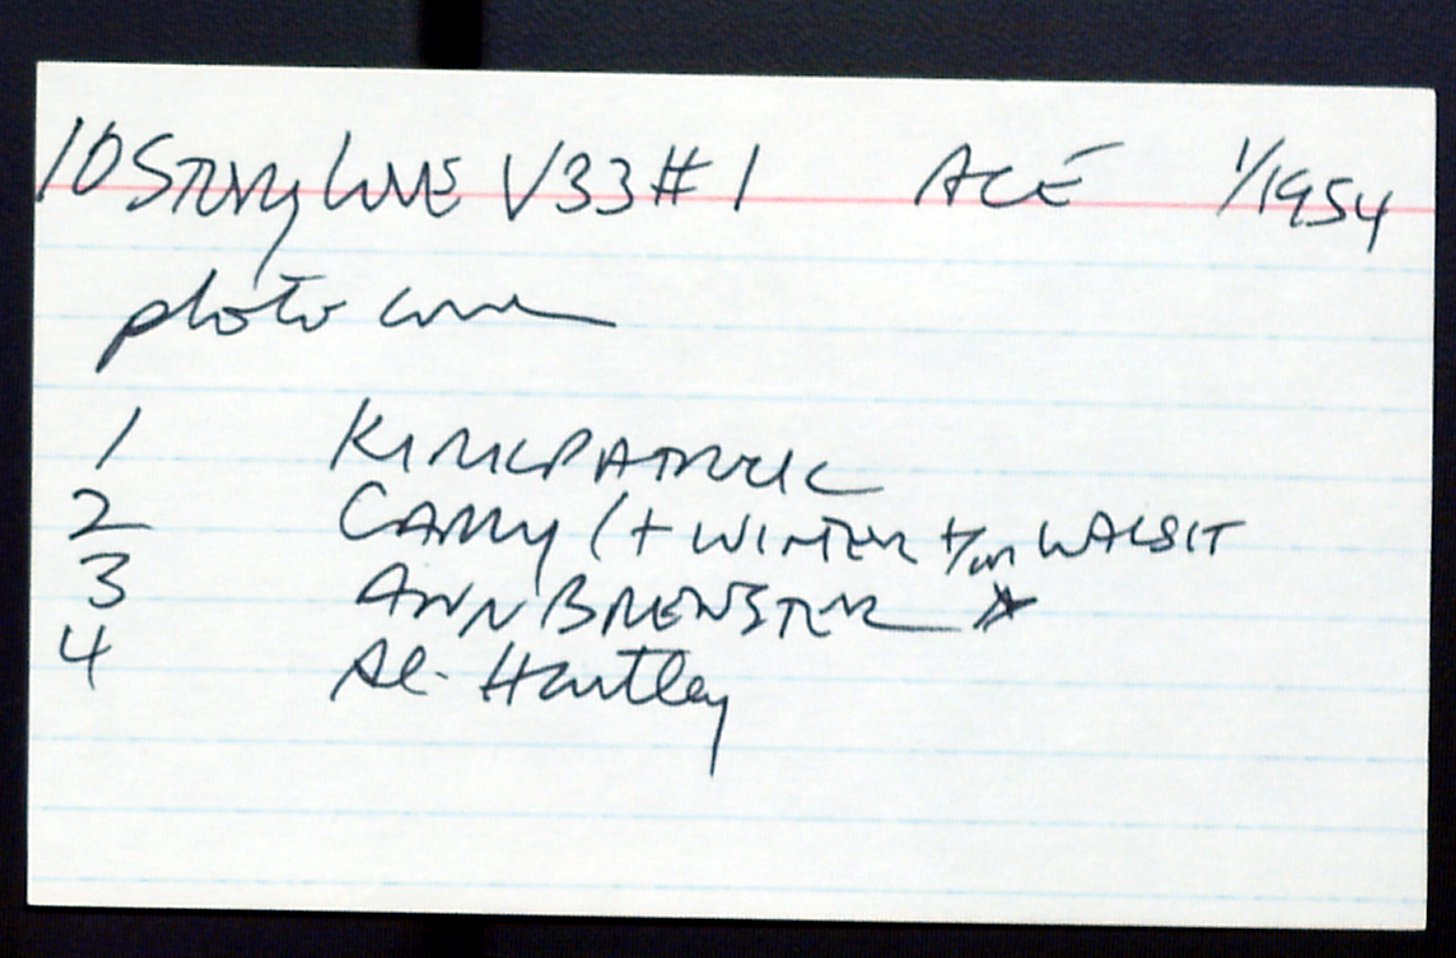 10 STORY LOVE V33 #1 ACE 1/1954
photo cover
1 KIRKPATRICK
2 CARRY (+ WINTER +/or WALSIT
3 ANN BREWSTER *
4 Al. Hartley